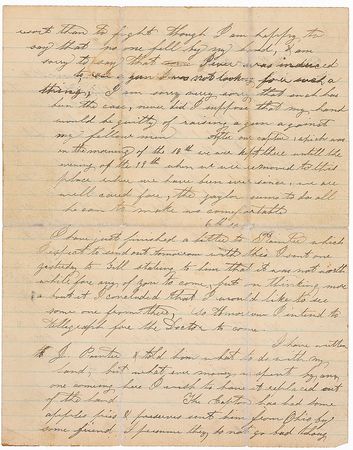 wont than to fight though I am happy to
say that no one fell by my hand, I am
sorry to say that I ever was induced
to use a gun I was not looking for such a
thing; I am sorry very sorry that such has
been the case, never did I suppose that my hand
would be guilty of raising a gun against
my fellow men After our capture, which was
in the morning of the 18th we were kept there until the
evening of the 19th when we were removed to this
place where we have been ever since, we are
well cared for, the jaylor seems to do all
he can to make us comfortable
I have just finished a letter to Painter which
I expect to send out tomorrow with this I sent one
yesterday to Gill stating to him that it was not worth
while for any of you to come, but on thinking more
about it I concluded that I would like to see
some one from there, so tomorrow I intend to
telegraph for the Doctor to come.
I have written
to J. Painter & told him what to do with my
land; but what ever money is spent by any
one coming here I wish to have it replaced out
of the land The Capton has had some
apples pies & preserves sent him from Ohio by
some friend I presume they do not go bad though